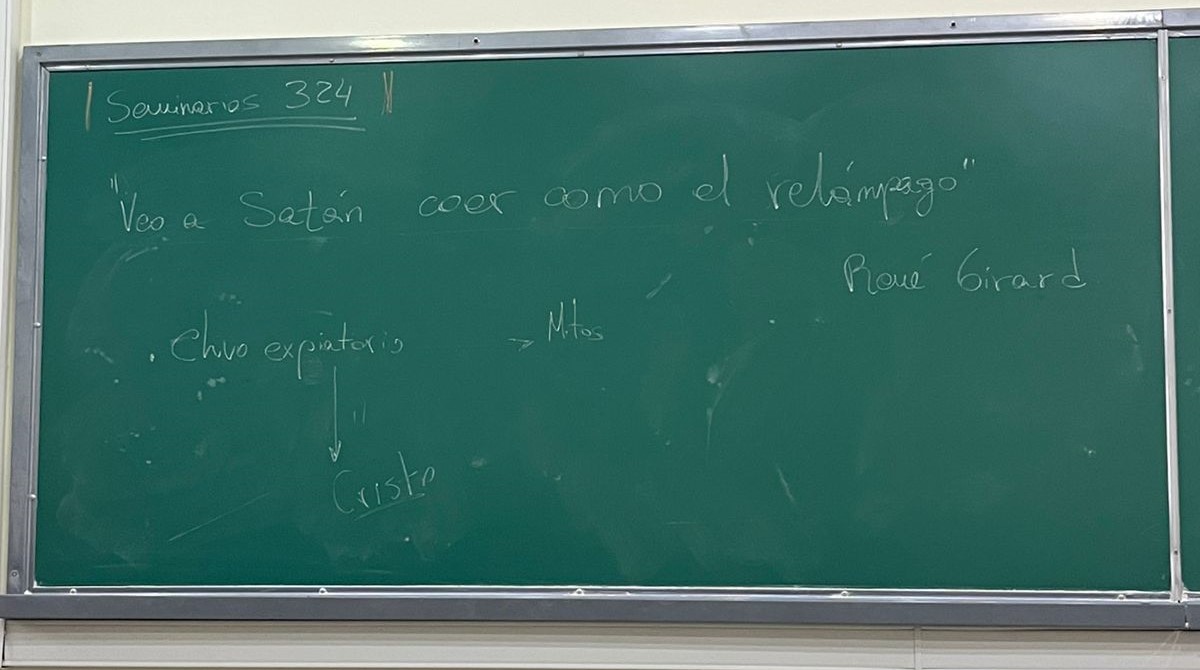 Seminarios 324
"Veo a Satán caer como el relámpago"
René Girard
. Chivo expiatorio → Mitos
Cristo